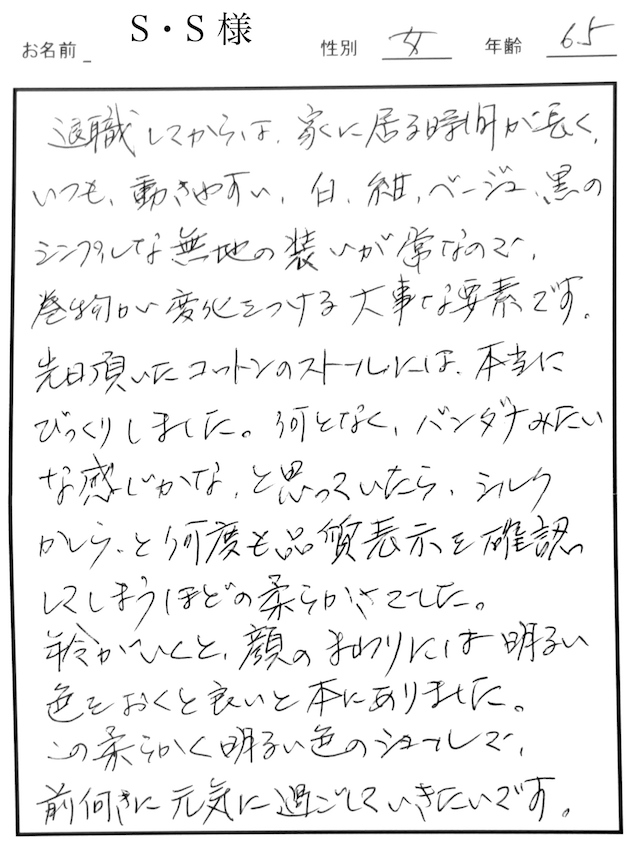 お名前 S・S 様 性別 女 年齢 65
退職してからは、家に居る時間が長く、
いつも、動きやすい、白、紺、ベージュ、黒の
シンプルな無地の装いが常なので、
巻物が変化をつける大事な要素です。
先日頂いたコットンのストールには、本当に
びっくりしました。何となく、バンダナみたい
な感じかな、と思っていたら、シルク
かしら、と何度も品質表示を確認
してしまうほどの柔らかさでした。
年齢がいくと、顔のまわりには明るい
色をおくと良いと本にありました。
この柔らかく明るい色のショールで、
前向きに元気に過ごしていきたいです。